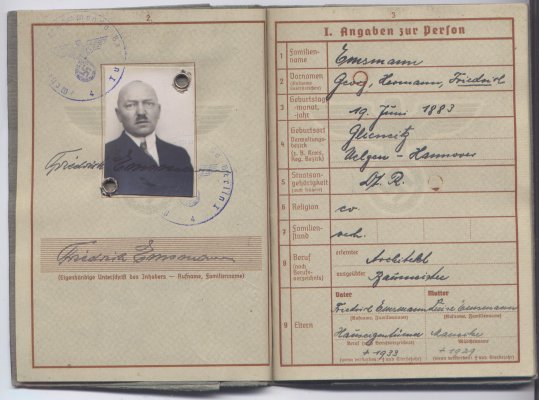 2.
Friedrich Emsmann
Friedrich Emsmann
(Eigenhändige Unterschrift des Inhabers – Rufname, Familienname)
3
I. Angaben zur Person
1 Familien-name Emsmann
2 Vornamen (Rufname unterstreichen) Georg, Hermann, Friedrich
3 Geburtstag, -monat, -jahr 19. Juni 1883
4 Geburtsort Verwaltungsbezirk (z. B. Kreis, Reg.-Bezirk)
Hannover
5 Staatsan-gehörigkeit (auch frühere) D. R.
6 Religion ev.
7 Familien-stand
8 Beruf (nach Berufs-verzeichnis) erlernter Architekt
ausgeübter Baumeister
9 Eltern
Vater Mutter
Friedrich Emsmann Luise Emsmann
(Rufname, Familienname) (Rufname, Familienname)
Hauseigentümer
Beruf (nach Berufsverzeichnis) Mädchenname
† 1933 † 1929
(wenn verstorben: † und Sterbejahr) (wenn verstorben: † und Sterbejahr)